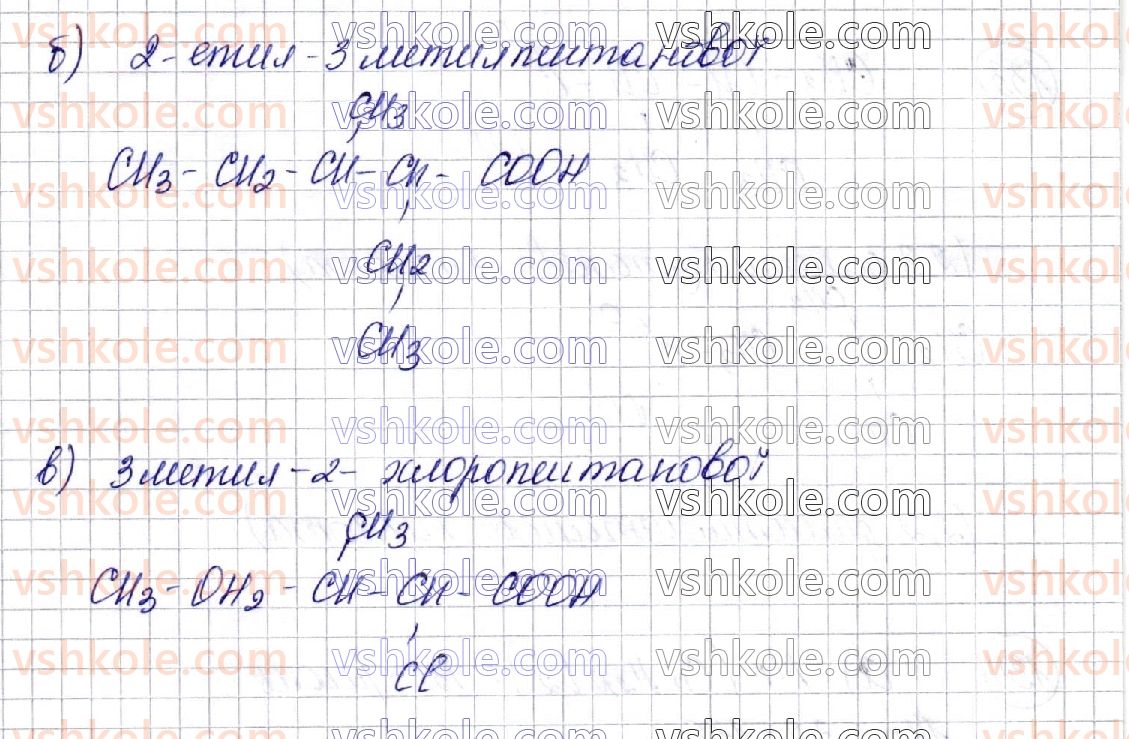 б) 2-етил-3 метилпентанової
CH3
CH3- CH2- CH- CH- COOH
CH2
CH3
в) 3метил-2- хлоропентанової
CH3
CH3- OH2- CH- CH- COOH
Cl
vshkole.com